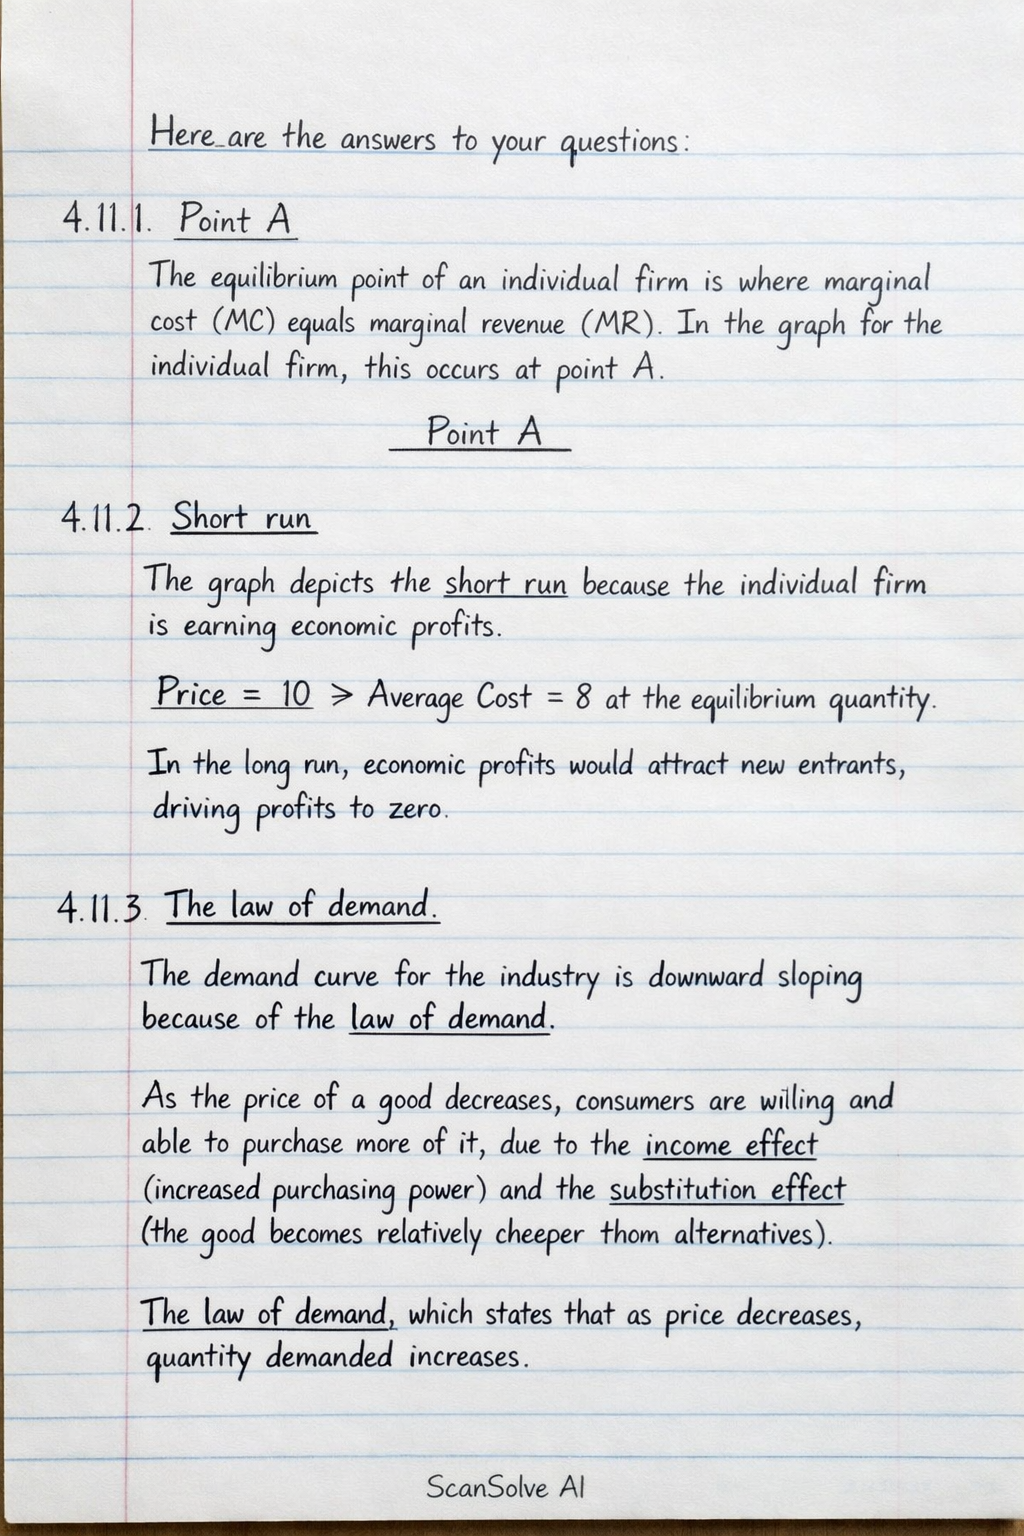 Here are the answers to your questions:
4.11.1. Point A
The equilibrium point of an individual firm is where marginal
cost (MC) equals marginal revenue (MR). In the graph for the
individual firm, this occurs at point A.
Point A
4.11.2. Short run
The graph depicts the short run because the individual firm
is earning economic profits.
Price = 10 > Average Cost = 8 at the equilibrium quantity.
In the long run, economic profits would attract new entrants,
driving profits to zero.
4.11.3. The law of demand.
The demand curve for the industry is downward sloping
because of the law of demand.
As the price of a good decreases, consumers are willing and
able to purchase more of it, due to the income effect
(increased purchasing power) and the substitution effect
(the good becomes relatively cheeper thom alternatives).
The law of demand, which states that as price decreases,
quantity demanded increases.
ScanSolve AI